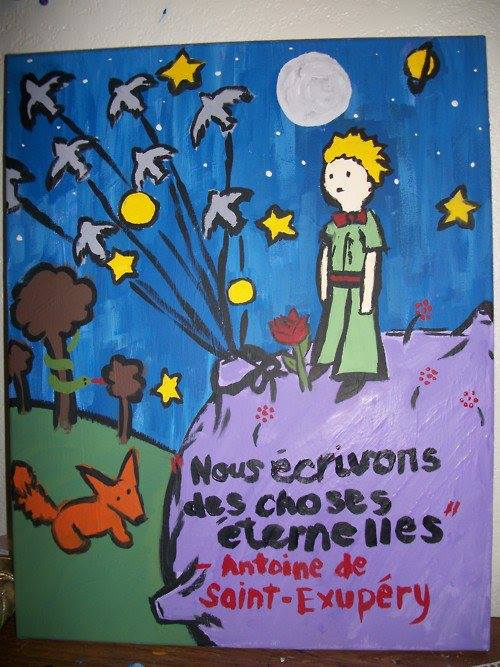 "Nous écrivons
des choses
éternelles"
- Antoine de
Saint-Exupéry